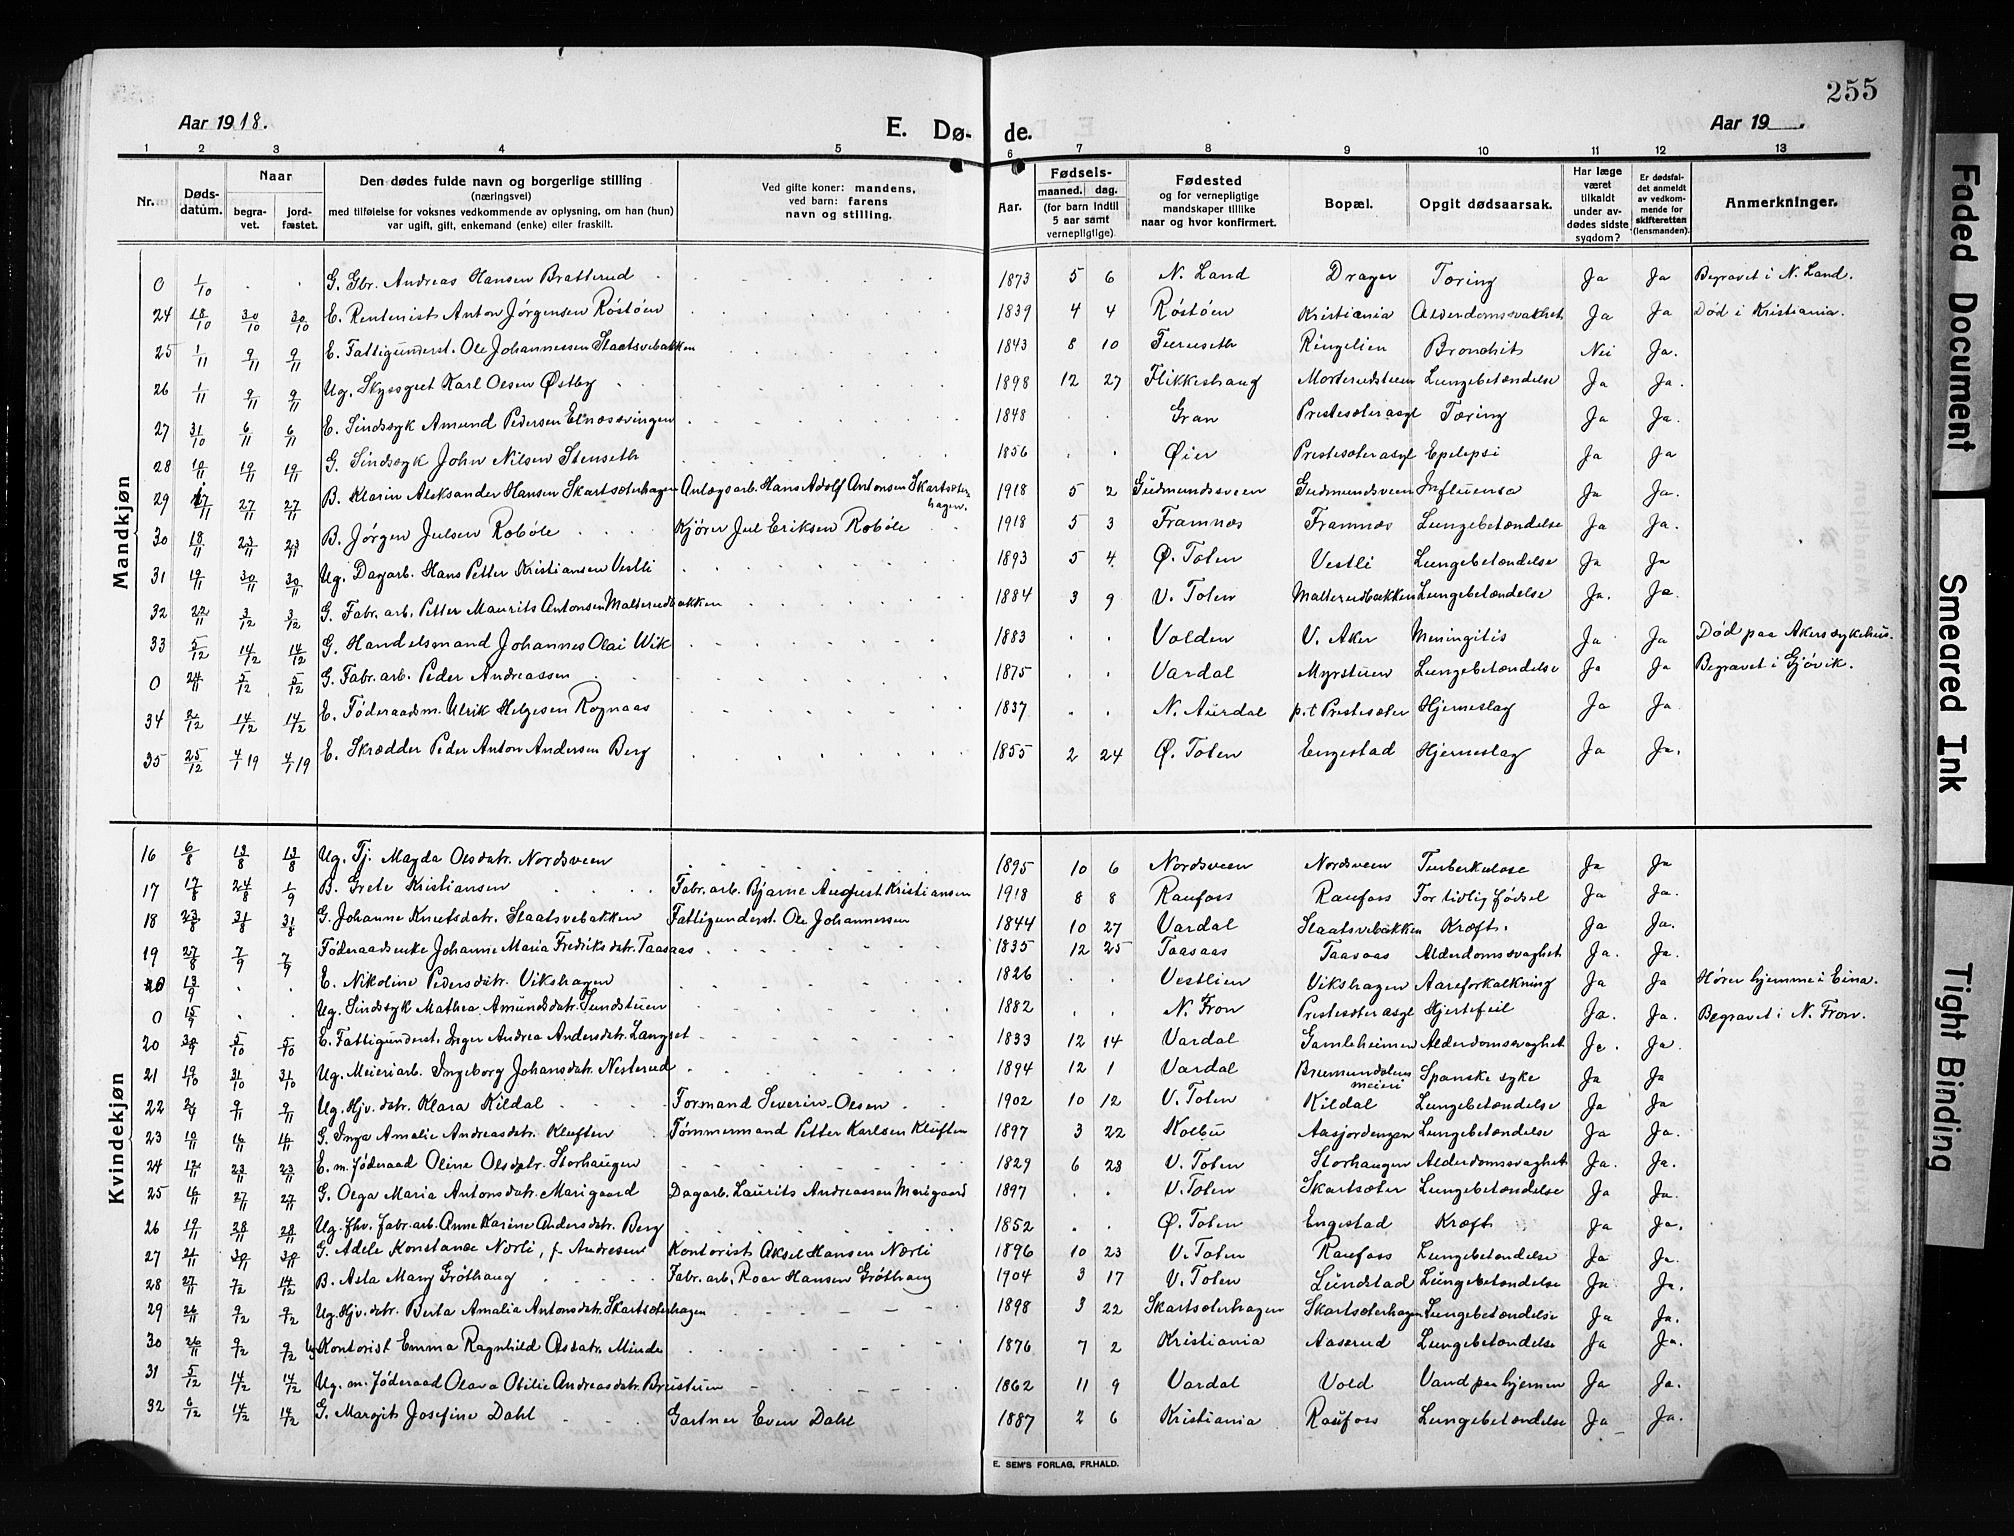 255
Aar 1918.
E. Dø- de.
Aar 19
1 2 3 4 5 6 7 8 9 10 11 12 13
Nr. Dødsdatum. Naar begravet. jordfæstet. Den dødes fulde navn og borgerlige stilling (næringsvei) med tilføielse for voksnes vedkommende av oplysning, om han (hun) var ugift, gift, enkemand (enke) eller fraskilt. Ved gifte koner: mandens, ved barn: farens navn og stilling. Aar. Fødsels- maaned. dag. (for barn indtil 5 aar samt vernepligtige). Fødested og for vernepligtige mandskaper tillike naar og hvor konfirmert. Bopæl. Opgit dødsaarsak. Har læge været tilkaldt under avdødes sidste sygdom? Er dødsfaldet anmeldt av vedkommende for skifteretten (lensmanden). Anmerkninger.
Mandkjøn
0 1/10 G. Gbr. Andreas Hansen Bratterud 1873 5 6 N. Land Drager Tæring Ja Ja Begravet i N. Land.
24 18/10 30/10 30/10 E. Rentenist Anton Jørgensen Røstøen 1839 4 4 Røstøen Kristiania Alderdomssvakhet Ja Ja Død i Kristiania.
25 1/11 9/11 9/11 E. Fattigunderst. Ole Johannessen Staatsvebakken 1843 8 10 Turuseth Ringelien Bronchit Nei Ja.
26 1/11 9/11 9/11 Ug. Skyssgut Karl Olsen Østby 1898 12 27 Flikkeshaug Morterudsteen Lungebetændelse Ja Ja.
27 31/10 6/11 6/11 E. Sindssyk Amund Pedersen Elnæssvingen 1848 Gran Prestesæter asyl Tæring Ja Ja.
28 10/11 19/11 19/11 G. Sindssyk John Nilsen Stenseth 1856 Øier Prestesæter asyl Epelepsi Ja Ja
29 17/11 27/11 27/11 B. Klarin Aleksander Hansen Skartsæterhagen Anlægsarb. Hans Adolf Antonsen Skartsæterhagen. 1918 5 2 Gudmundsveen Gudmundsveen Influensa Ja Ja.
30 18/11 23/11 23/11 B. Jørgen Julsen Robøle Kjører Jul Eriksen Robøle 1918 5 3 Framnæs Framnæs Lungebetændelse Ja Ja.
31 19/11 30/11 30/11 Ug. Dagarb. Hans Petter Kristiansen Vestli 1893 5 4 Ø. Toten Vestli Lungebetændelse Ja Ja
32 22/11 3/12 3/12 G. Fabr. arb. Petter Maurits Antonsen Malterudbakken 1884 3 9 V. Toten Malterudbakken Lungebetændelse Ja. Ja.
33 5/12 14/12 14/12 G. Handelsmand Johannes Olai Wik 1883 Volden V. Aker Meningitis Ja Ja Død paa Akers sykehus.
0 24/11 5/12 5/12 G. Fabr. arb. Peder Andreassen 1875 Vardal Myrstuen Lungebetændelse Ja Ja Begravet i Gjøvik.
34 2/12 14/12 14/12 E. Føderaadsm. Ulrik Helgesen Rognaas 1837 N. Aurdal p.t Prestesæter Hjerneslag Ja Ja.
35 25/12 4/1 19 4/1 19 E. Skrædder Peder Anton Andersen Berg 1855 2 24 Ø. Toten Engestad Hjerneslag Ja Ja.
Kvindekjøn
16 6/8 13/8 13/8 Ug. Tj. Magda Olsdatr. Nordsveen 1895 10 6 Nordsveen Nordsveen Tuberkulose Ja Ja
17 17/8 24/8 1/9 B. Grete Kristiansen Fabr. arb. Bjarne August Kristiansen 1918 8 8 Raufoss Raufoss For tidlig fødsel Ja Ja.
18 23/8 31/8 31/8 G. Johanne Knutsdatr. Staatsvebakken Fattigunderst. Ole Johannessen 1844 10 27 Vardal Staatsvebakken Kræft. Ja Ja.
19 27/8 7/9 7/9 Føderaadsenke Johanne Maria Fredriksdatr. Taasaas 1835 12 25 Taasaas Taasaas Alderdomssvaghet Ja. Ja.
0 13/9 E. Nikoline Pedersdatr. Vikshagen 1826 Vestlien Vikshagen Aareforkalkning Ja Ja Hører hjemme i Eina.
0 15/9 Ug. Sindssyk Mathea Amundsdatr. Sundstuen 1882 N. Fron Prestesæter asyl Hjertefeil Ja. Ja. Begravet i N. Fron.
20 30/9 5/10 5/10 E. Fattigunderst. Inger Andrea Andersdatr. Langset 1833 12 14 Vardal Gamleheimen Alderdomssvaghet Ja. Ja.
21 19/10 31/10 31/10 Ug. Meieriarb. Ingeborg Johansdatr. Nesterud 1894 12 1 Vardal Brumundalens meieri Spanske syke Ja Ja
22 9/11 9/11 Ug. Hjv. datr. Klara Kildal Formand Severin Olsen 1902 10 12 V. Toten Kildal Lungebetændelse Ja Ja
23 10/11 16/11 16/11 G. Inga Amalie Andreasdatr. Kluften Tømmermand Petter Karlsen Kluften 1897 3 22 Kolbu Aasjordengen Lungebetændelse Ja Ja.
24 17/11 23/11 23/11 E. m. føderaad Oline Olsdatr. Storhaugen 1829 6 23 V. Toten Storhaugen Alderdomssvaghet Ja. Ja.
25 16/11 27/11 27/11 G. Olga Maria Antonsdatr. Marigaard Dagarb. Laurits Andreassen Marigaard 1897 V. Toten Skartsæter Lungebetændelse Ja Ja.
26 19/11 28/11 28/11 Ug. fhv. fabr. arb. Anne Karine Andersdatr. Berg 1852 Ø. Toten Engestad Kræft Ja Ja.
27 21/11 30/11 30/11 G. Adele Konstanse Nærli, f. Andresen Kontorist Aksel Hansen Nærli 1896 10 23 V. Toten Raufoss Lungebetændelse Ja Ja.
28 27/11 7/12 14/12 B. Asla Mary Grøthaug Fabr. arb. Roar Hansen Grøthaug 1904 3 17 V. Toten Lundstad Lungebetændelse Ja. Ja.
29 26/11 9/12 9/12 Ug. Hjv. datr. Berta Amalia Antonsdatr. Skartsæterhagen 1898 3 22 Skartsæterhagen Skartsæterhagen Lungebetændelse Ja Ja.
30 26/11 9/12 9/12 Ug Kontorist Emma Ragnhild Olsdatr. Minde 1876 7 2 Kristiania Aaserud Lungebetændelse Ja Ja.
31 5/12 14/12 14/12 Ug. m. føderaad Olava Otilie Andreasdatr. Brustuen 1862 11 9 Vardal Vold Vand paa hjernen Ja Ja.
32 6/12 14/12 14/12 G. Margit Josefine Dahl Gartner Even Dahl 1887 2 6 Kristiania Raufoss Lungebetændelse Ja Ja.
E. SEM'S FORLAG, FR.HALD.
Faded Document
Smeared Ink
Tight Binding